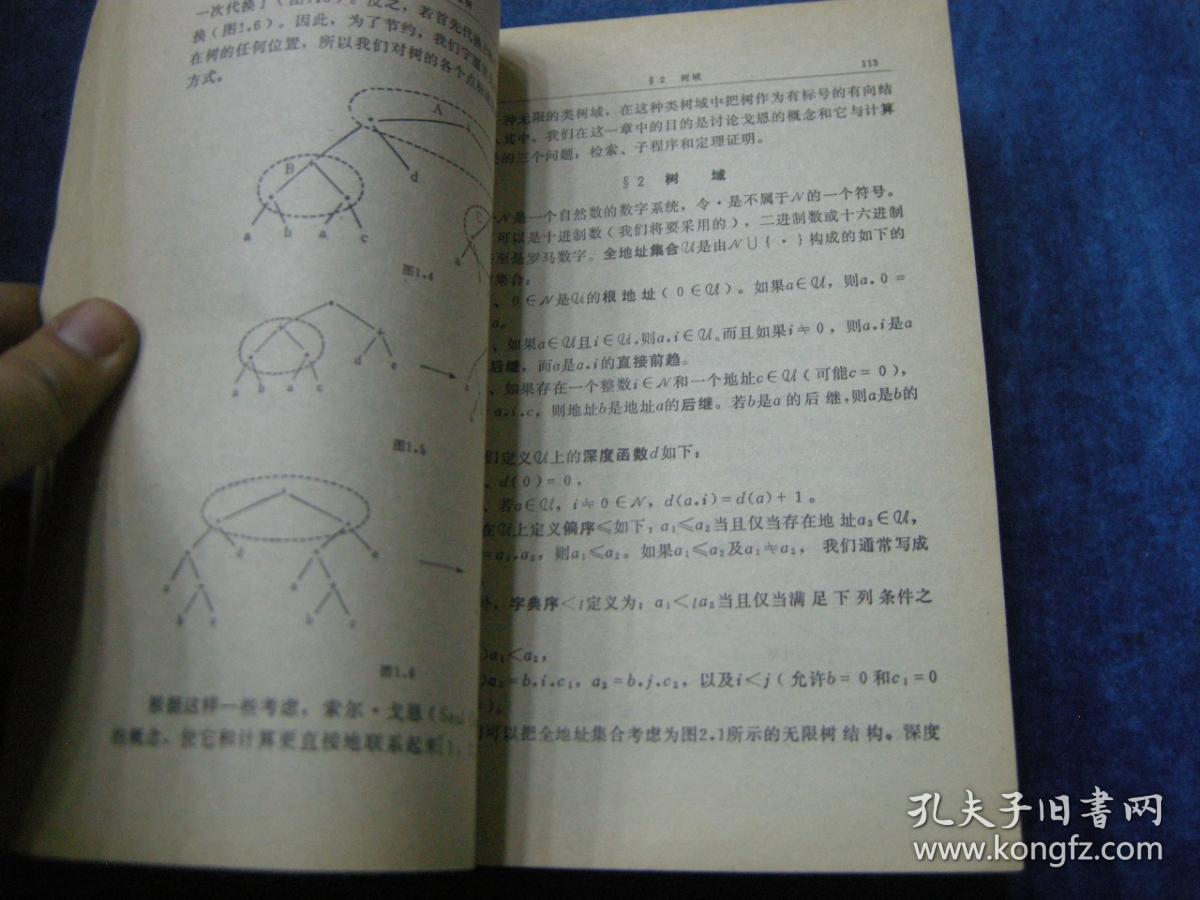 换(图1.6)。因此,为了节约,我们宁愿
在树的任何位置,所以我们对树的各个点
方式。
A
B
d
a b a c
图1.4
d e
b a c
图1.5
d
图1.6
根据这样一些考虑,索尔·戈恩(Saul
的概念,使它和计算更直接地联系起来
§2 树域 113
种无限的类树域,在这种类树域中把树作为有标号的有向结
其中,我们在这一章中的目的是讨论戈恩的概念和它与计算
的三个问题:检索、子程序和定理证明。
§2 树 域
𝒩是一个自然数的数字系统,令·是不属于𝒩的一个符号。
可以是十进制数(我们将要采用的),二进制数或十六进制
至是罗马数字。全地址集合𝒰是由𝒩∪{·}构成的如下的
集合:
、0∈𝒩是𝒰的根地址(0∈𝒰)。如果a∈𝒰,则a.0=
a。
、如果a∈𝒰且i∈𝒰,则a.i∈𝒰。而且如果i≒0,则a.i是a
后继,而a是a.i的直接前趋。
、如果存在一个整数i∈𝒩和一个地址c∈𝒰(可能c=0),
a.i.c,则地址b是地址a的后继。若b是a的后继,则a是b的
们定义𝒰上的深度函数d如下:
、d(0)=0,
、若a∈𝒰,i≒0∈𝒩,d(a.i)=d(a)+1。
在𝒰上定义偏序≤如下:a₁≤a₂当且仅当存在地址a₃∈𝒰,
=a₁.a₃,则a₁≤a₂。如果a₁≤a₂及a₁≒a₂,我们通常写成
字典序<l定义为:a₁<la₂当且仅当满足下列条件之
)a₁<a₂,
)a₁=b.i.c₁,a₂=b.j.c₂,以及i<j(允许b=0和c₁=0
)。
可以把全地址集合考虑为图2.1所示的无限树结构。深度
孔夫子旧书网
www.kongfz.com